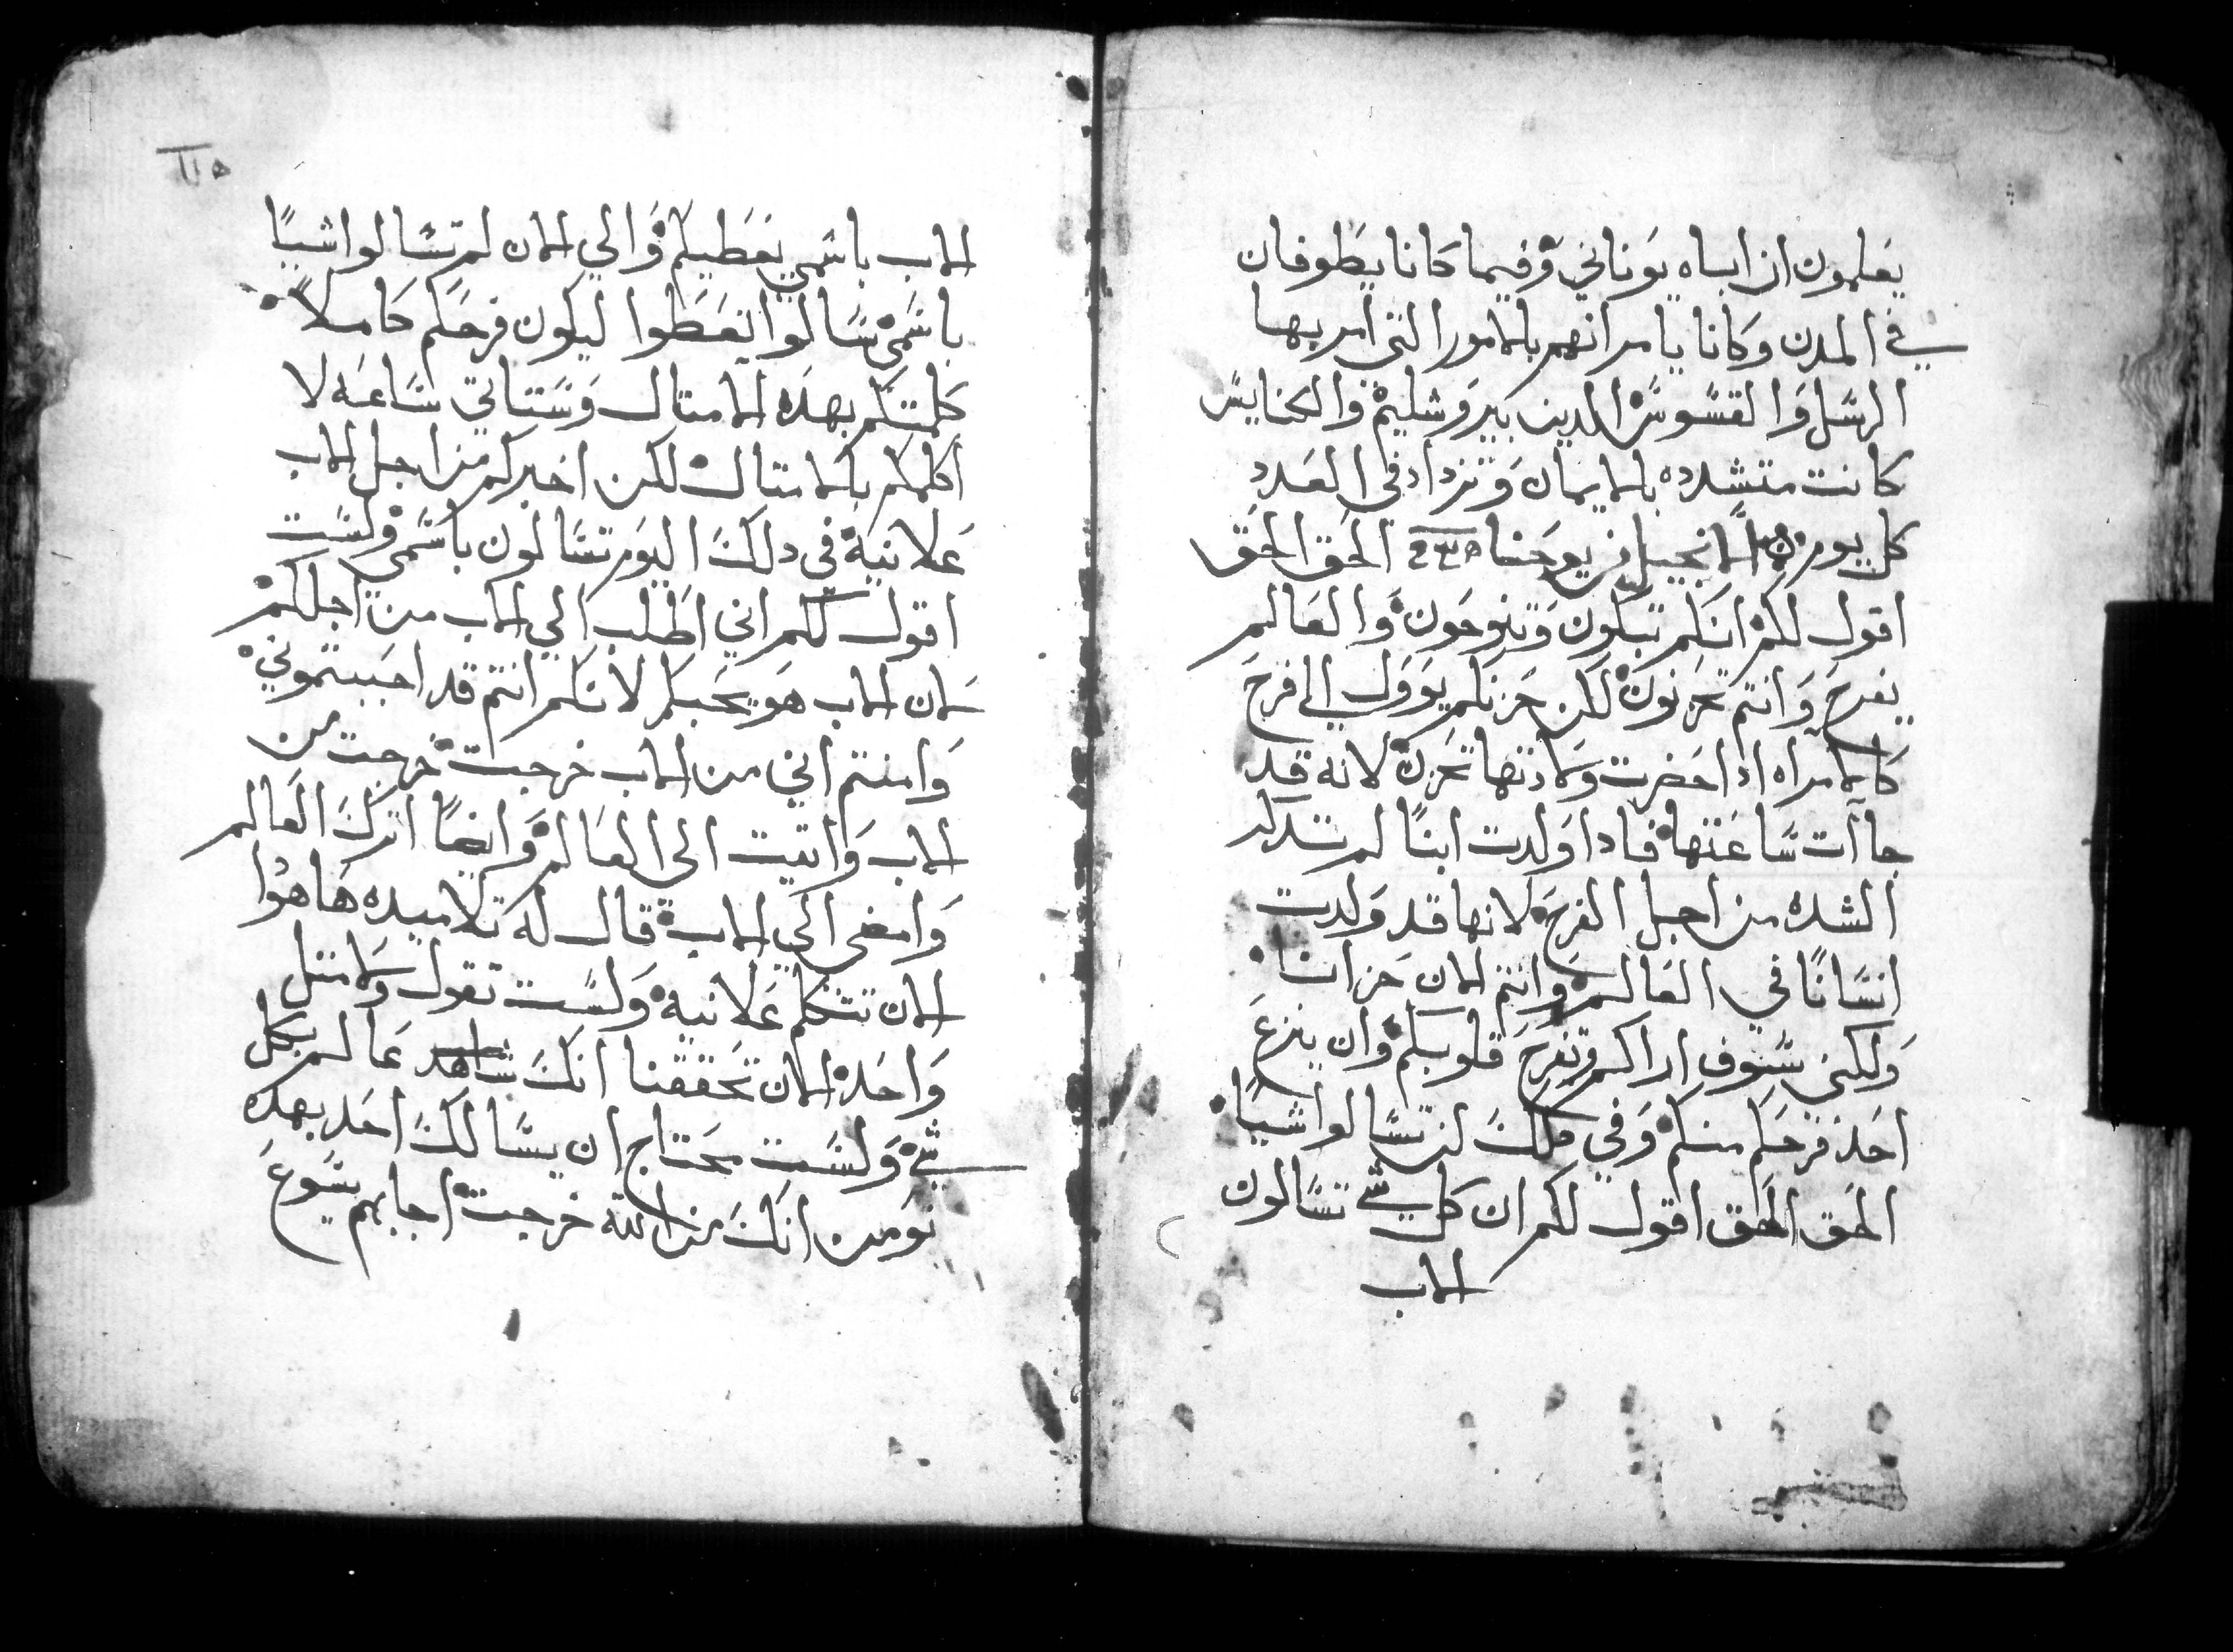 يعلمون ان اباه يوناني وفيما كانا يطوفان
في المدن وكانا يامرانهم بالامور التي امر بها
الرسل والقسوس الدين بيروشليم والكنايس
كانت متشدده بالايمان وتزداد في العدد
كل يوم الانجيل من يوحنا الحق الحق
اقول لكم انكم تبكون وتنوحون والعالم
يفرح وانتم تحزنون لكن حزنكم يوول الى فرح
كالامراه ادا حضرت ولادتها تحزن لانه قد
جاات ساعتها فادا ولدت ابنا لم تتدكر
الشده من اجل الفرح لانها قد ولدت
انسانا في العالم وانتم الان حزانا
ولكني سوف اراكم وتفرح قلوبكم وان ينزع
احد فرحكم منكم وفي دلك لن تسالوا شيا
الحق الحق اقول لكم ان كل شي تسالون
الاب
١١٥
الاب باسمي يعطيكم والي الان لم تسالوا شيا
باسمي سالوا تعطوا ليكون فرحكم كاملا
كلمتكم بهده الامتال وستاتي ساعه لا
اكلمكم بالامتال لكن اخبركم من اجل الاب
علانية في دلك اليوم تسالون باسمي ولست
اقول لكم اني اطلب الي الاب من اجلكم
لان الاب هو يحبكم لانكم انتم قد احببتموني
وامنتم اني من الاب خرجت خرجت من
الاب واتيت الى العالم وايضا اترك العالم
وامضي الي الاب قال له تلاميده هاهوا
الان تتكلم علانية ولست تقول ولا متل
واحد الان تحققنا انك شاهد عالم بكل
شي ولست محتاج ان يسالك احد بهده
نومن انك من الله خرجت اجابهم يسوع